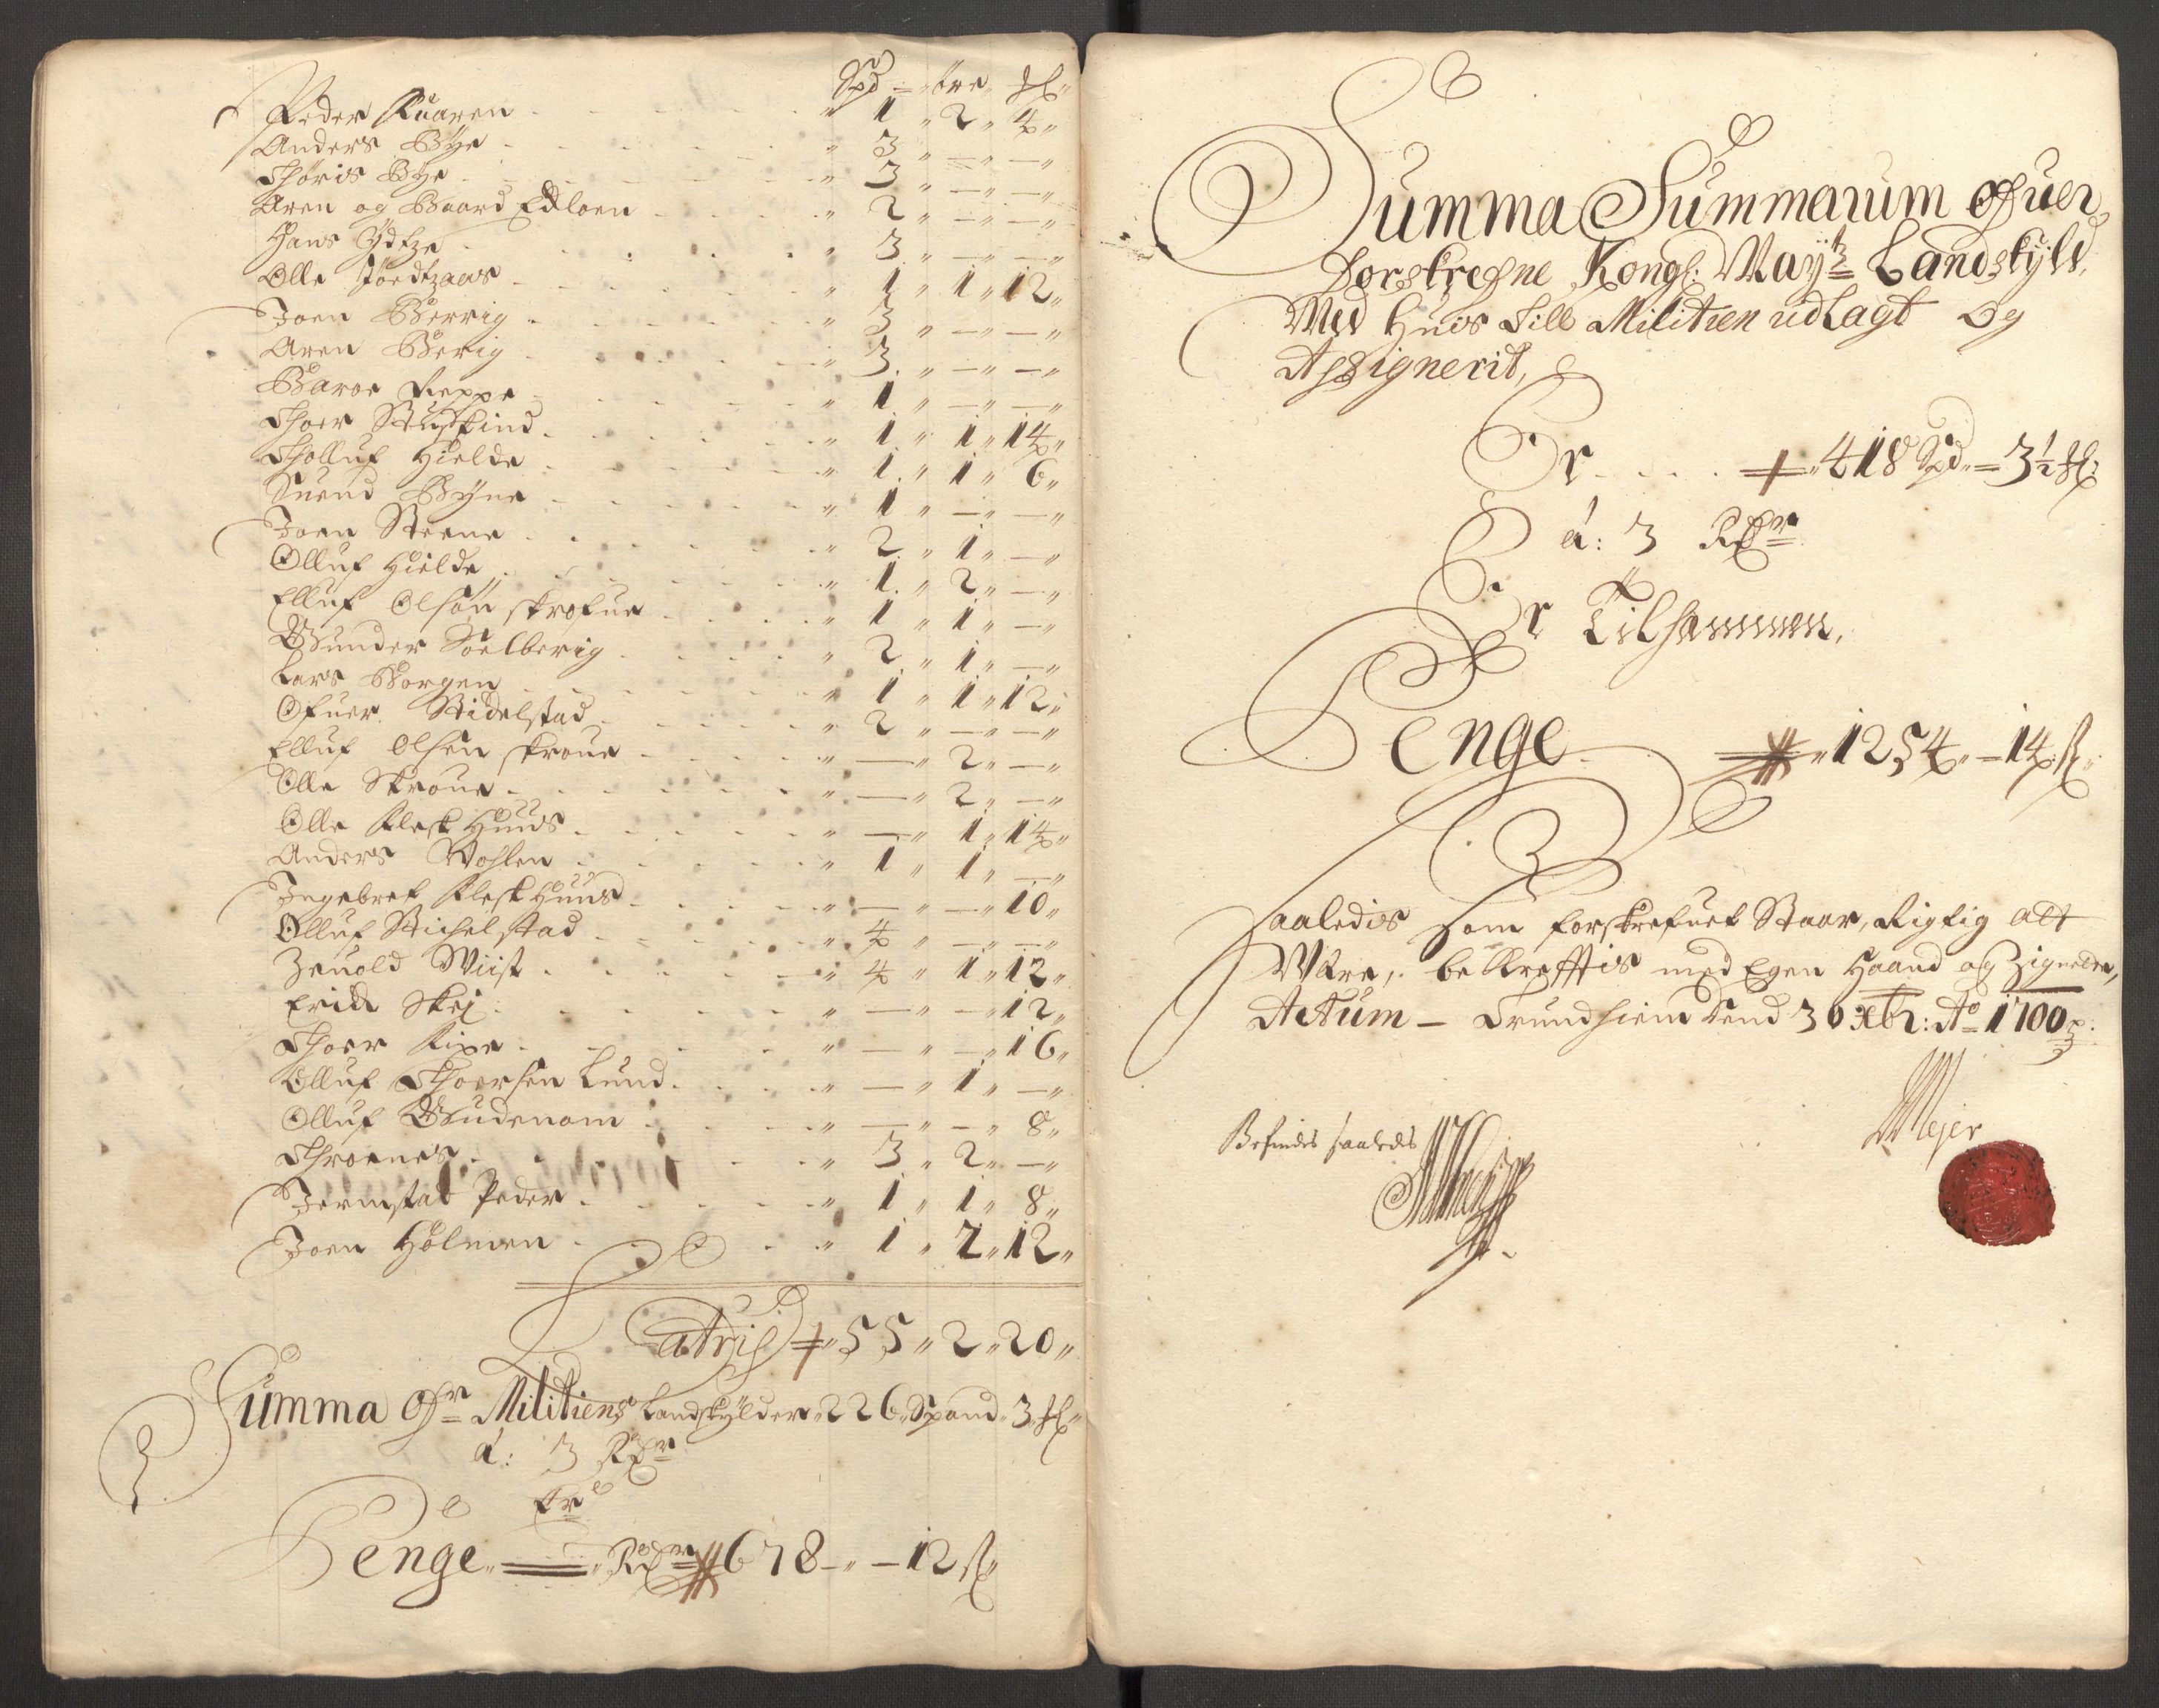 Spd – øre ₰
Peder Kuaren . . . " 1 " 2 " 4 "
Anders Bye . . . " 3 " — " — "
Thoris Bye . . . " 3 " — " — "
Aren og Baard Edloen . . . " 2 " — " — "
Hans Ydtze . . . " 3 " — " — "
Olle Toedtzaas . . . " 1 " 1 " 12 "
Joen Berrig . . . " 3 " — " — "
Aren Berig . . . " 3 " — " — "
Baroe Reppe . . . " 1 " — " — "
Thoer Stuskind . . . " 1 " 1 " 14 "
Tholluf Hielde . . . " 1 " 1 " 6 "
Suend Byne . . . " 1 " — " — "
Joen Steene . . . " 2 " 1 " — "
Olluf Hielde . . . " 1 " 2 " — "
Elluf Olsøn skrofue . . . " 1 " 1 " — "
Gunder Soelberig . . . " 2 " 1 " — "
Lars Borgen . . . " 1 " 1 " 12 "
Ofuer Stidelstad . . . " 2 " — " — "
Elluf Olsen skroue . . . " — " 2 " — "
Olle Skroue . . . " — " 2 " — "
Olle Kleskhuus . . . " — " 1 " 14 "
Anders Wohlen . . . " 1 " 1 " — "
Ingebret Kleskhuus . . . " — " — " 10 "
Olluf Stichelstad . . . " 4 " — " — "
Zeuold Wiist . . . " 4 " 1 " 12 "
Erich Skej . . . " — " — " 12 "
Thoer Rixe . . . " — " — " 16 "
Olluf Thoersen Lund . . . " — " 1 " — "
Olluf Gudenom . . . " — " — " 8 "
Throenes . . . " 3 " 2 " — "
Jermstad Peder . . . " 1 " 1 " 8 "
Joen Holmen . . . " 1 " 2 " 12 "
Latris 55 " 2 " 20 "
Summa Ofr Militiens Landskylder " 226 " Spand " 3 ₰
á: 3 Rdr
Er
Penge " Rdr 678 – " – 12 ß
Summa Summarum Ofuer
forskrefne Kongl: Mayts Landskyld,
Med huis till Militien udlagt og
Assignerit,
Er . . . 418 Spd – 3½ ₰
á: 3 Rdr
Er Tilsammen,
Penge 1254 " – 14 ß
Saaledis som forskrefuet Staar, Rigtig att
Være, bekrefftis med Egen Haand og Zignette,
Actum – Trundhiem dend 30 Xbr: Ao 1700
Mejer
Befindes saaledis